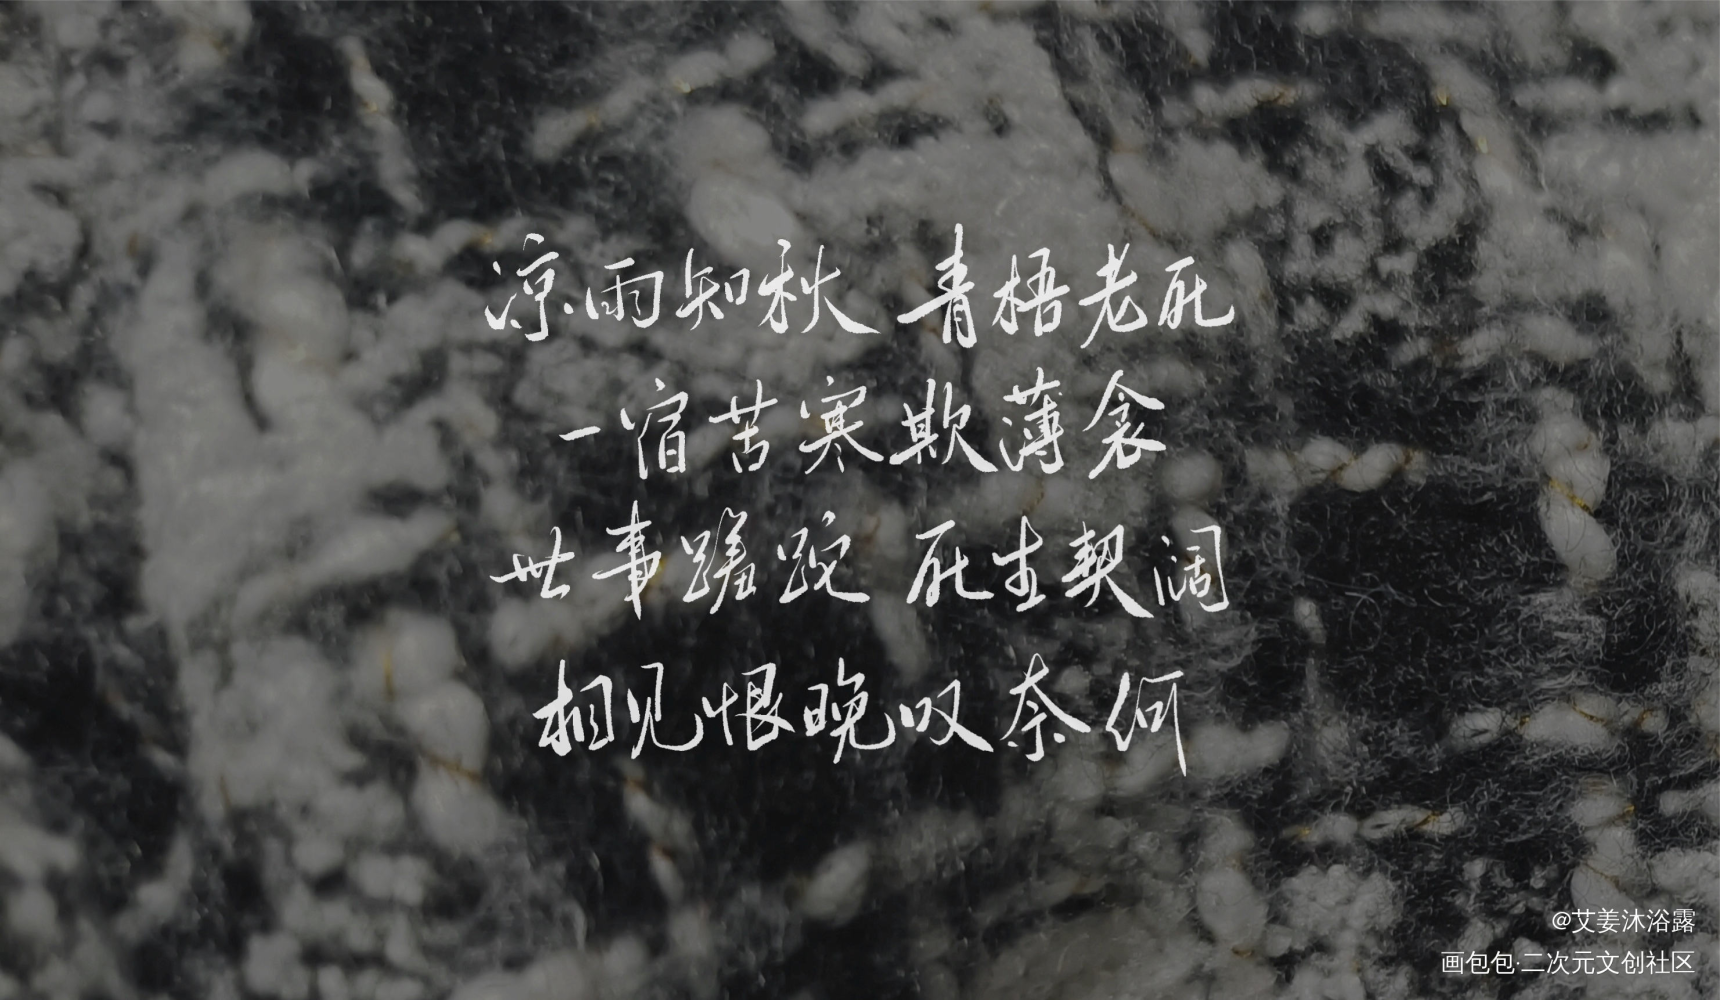 凉雨知秋 青梧老死
一宿苦寒欺薄衾
世事蹉跎 死生契阔
相见恨晚叹奈何
@艾姜沐浴露
画包包·二次元文创社区